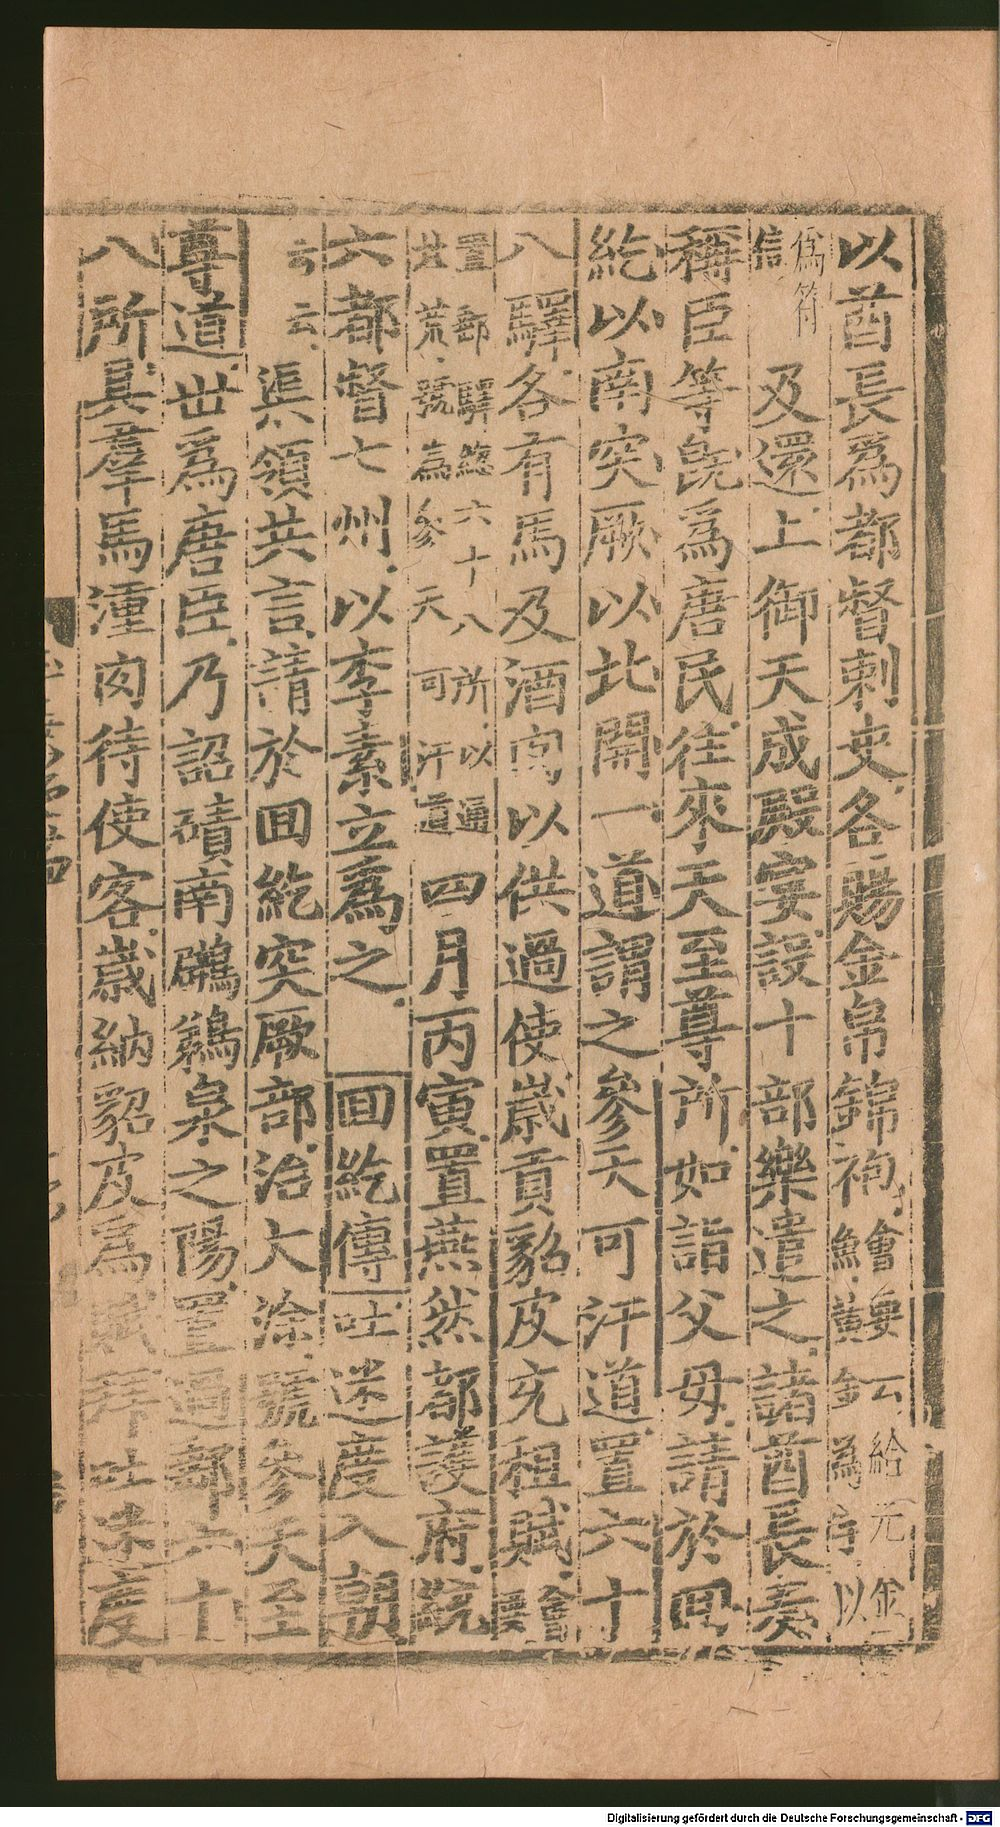 以酋長爲都督刺史各賜金帛錦袍會要云給元金魚黃金爲字以
爲符信及還上御天成殿宴設十部樂遣之諸酋長奏
稱臣等旣爲唐民往來天至尊所如詣父母請於回
紇以南突厥以北開一道謂之參天可汗道置六十
八驛各有馬及酒肉以供過使歲貢貂皮充租賦會要
置郵驛總六十八所以通北荒號爲參天可汗道四月丙寅置燕然都護府統
六都督七州以李素立爲之回紇傳吐迷度入朝
云云渠領共言請於回紇突厥部治大涂號參天至
尊道世爲唐臣乃詔磧南鸊鵜泉之陽置過郵六十
八所具羣馬湩肉待使客歲納貂皮爲賦拜吐迷度
Digitalisierung gefördert durch die Deutsche Forschungsgemeinschaft - DFG